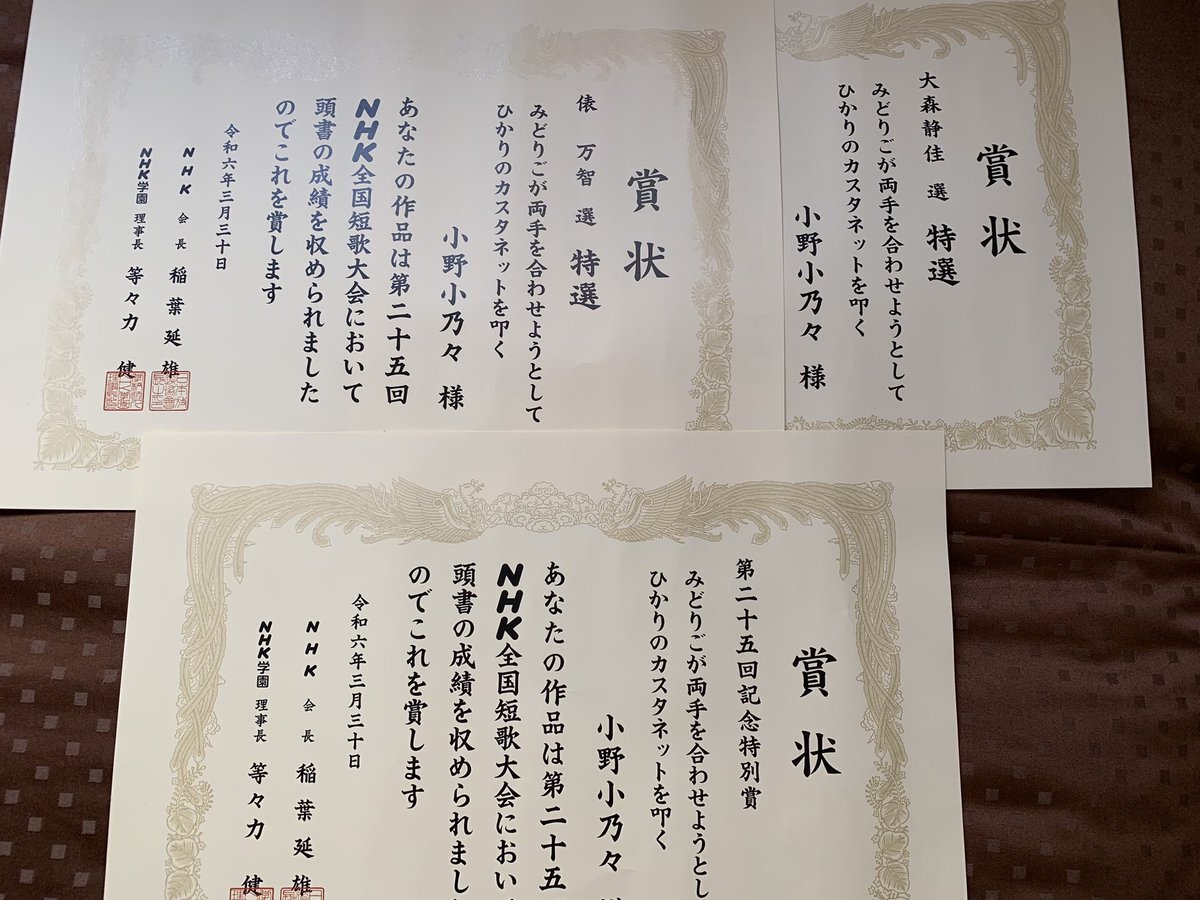 賞状
大森静佳 選 特選
みどりごが両手を合わせようとして
ひかりのカスタネットを叩く
小野小乃々 様
賞状
俵 万智 選 特選
みどりごが両手を合わせようとして
ひかりのカスタネットを叩く
小野小乃々 様
あなたの作品は第二十五回
NHK全国短歌大会において
頭書の成績を収められました
のでこれを賞します
令和六年三月三十日
NHK 会長 稲葉延雄
NHK学園 理事長 等々力 健
賞状
第二十五回記念特別賞
みどりごが両手を合わせようとし
ひかりのカスタネットを叩く
小野小乃々
あなたの作品は第二十五
NHK全国短歌大会におい
頭書の成績を収められまし
のでこれを賞します
令和六年三月三十日
NHK 会長 稲葉延雄
NHK学園 理事長 等々力 健